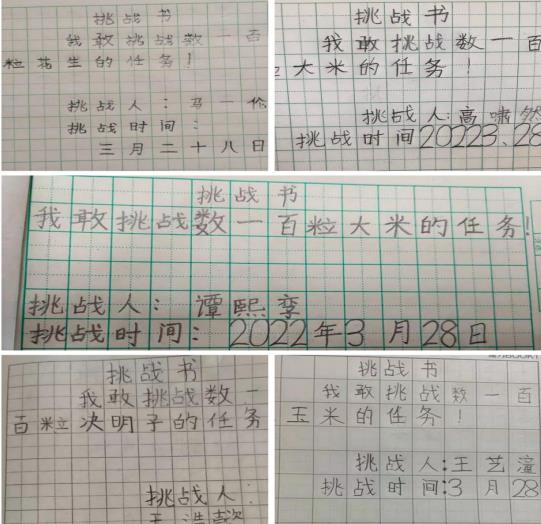 挑战书
我敢挑战数一百
粒花生的任务！
挑战人：马一伦
挑战时间：
三月二十八日
挑战书
我敢挑战数一百
大米的任务！
挑战人：高啸然
挑战时间20223、28
挑战书
我敢挑战数一百粒大米的任务！
挑战人：谭熙孪
挑战时间：2022年3月28日
挑战书
我敢挑战数一
百粒决明子的任务
挑战人：
王浩懿
挑战书
我敢挑战数一百
玉米的任务！
挑战人：王艺潼
挑战时间：3月28